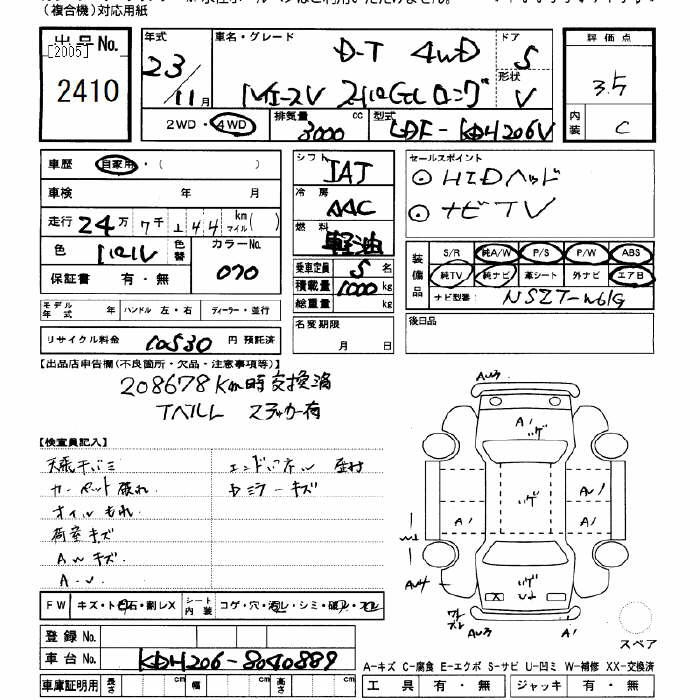 (複合機)対応用紙
出品No.
[2005]
2410
年式
23/11月
車名・グレード
D-T 4WD
ドア
5
形状
V
2WD・4WD
排気量 3000 cc
型式 LDF-KDH206V
評価点
3.5
内装
C
車歴 自家用・( )
車検 年 月
走行 24万7千144 km マイル( )
色 パール
色替
カラーNo. 070
保証書 有・無
シフト IAT
冷房 AAC
燃料 軽油
乗車定員 5 名
積載量 1000 kg
総重量 kg
セールスポイント
⊙ HIDヘッド
⊙ ナビTV
装備品
S/R 純A/W P/S P/W ABS
純TV 純ナビ 革シート 外ナビ エアB
ナビ型番: NSZT-W61G
モデル年式 年 ハンドル 左・右 ディーラー・並行
名変期限 月 日
後日品
リサイクル料金 10530 円 預託済
【出品店申告欄(不良箇所・欠品・注意事項等)】
208678Km時交換済
Tベルト ステッカー有
【検査員記入】
天張干バミ
カーペット破れ
オイルもれ
荷室キズ
AWキズ
A-U
エンドパネル 歪材
Dミラーキズ
FW キズ・ト石・割レX
シート内装 コゲ・穴・汚レ・シミ・破レ・スレ
登録No.
車台No. KDH206-8040889
車庫証明用 長さ cm 幅 cm 高さ cm
AU3
A1
イゲ
イゲ
AU1
A1
A1
AU4
イゲ
X
U1
AU3
A1
スペア
A-キズ C-腐食 E-エクボ S-サビ U-凹ミ W-補修 XX-交換済
工具 有・無 ジャッキ 有・無